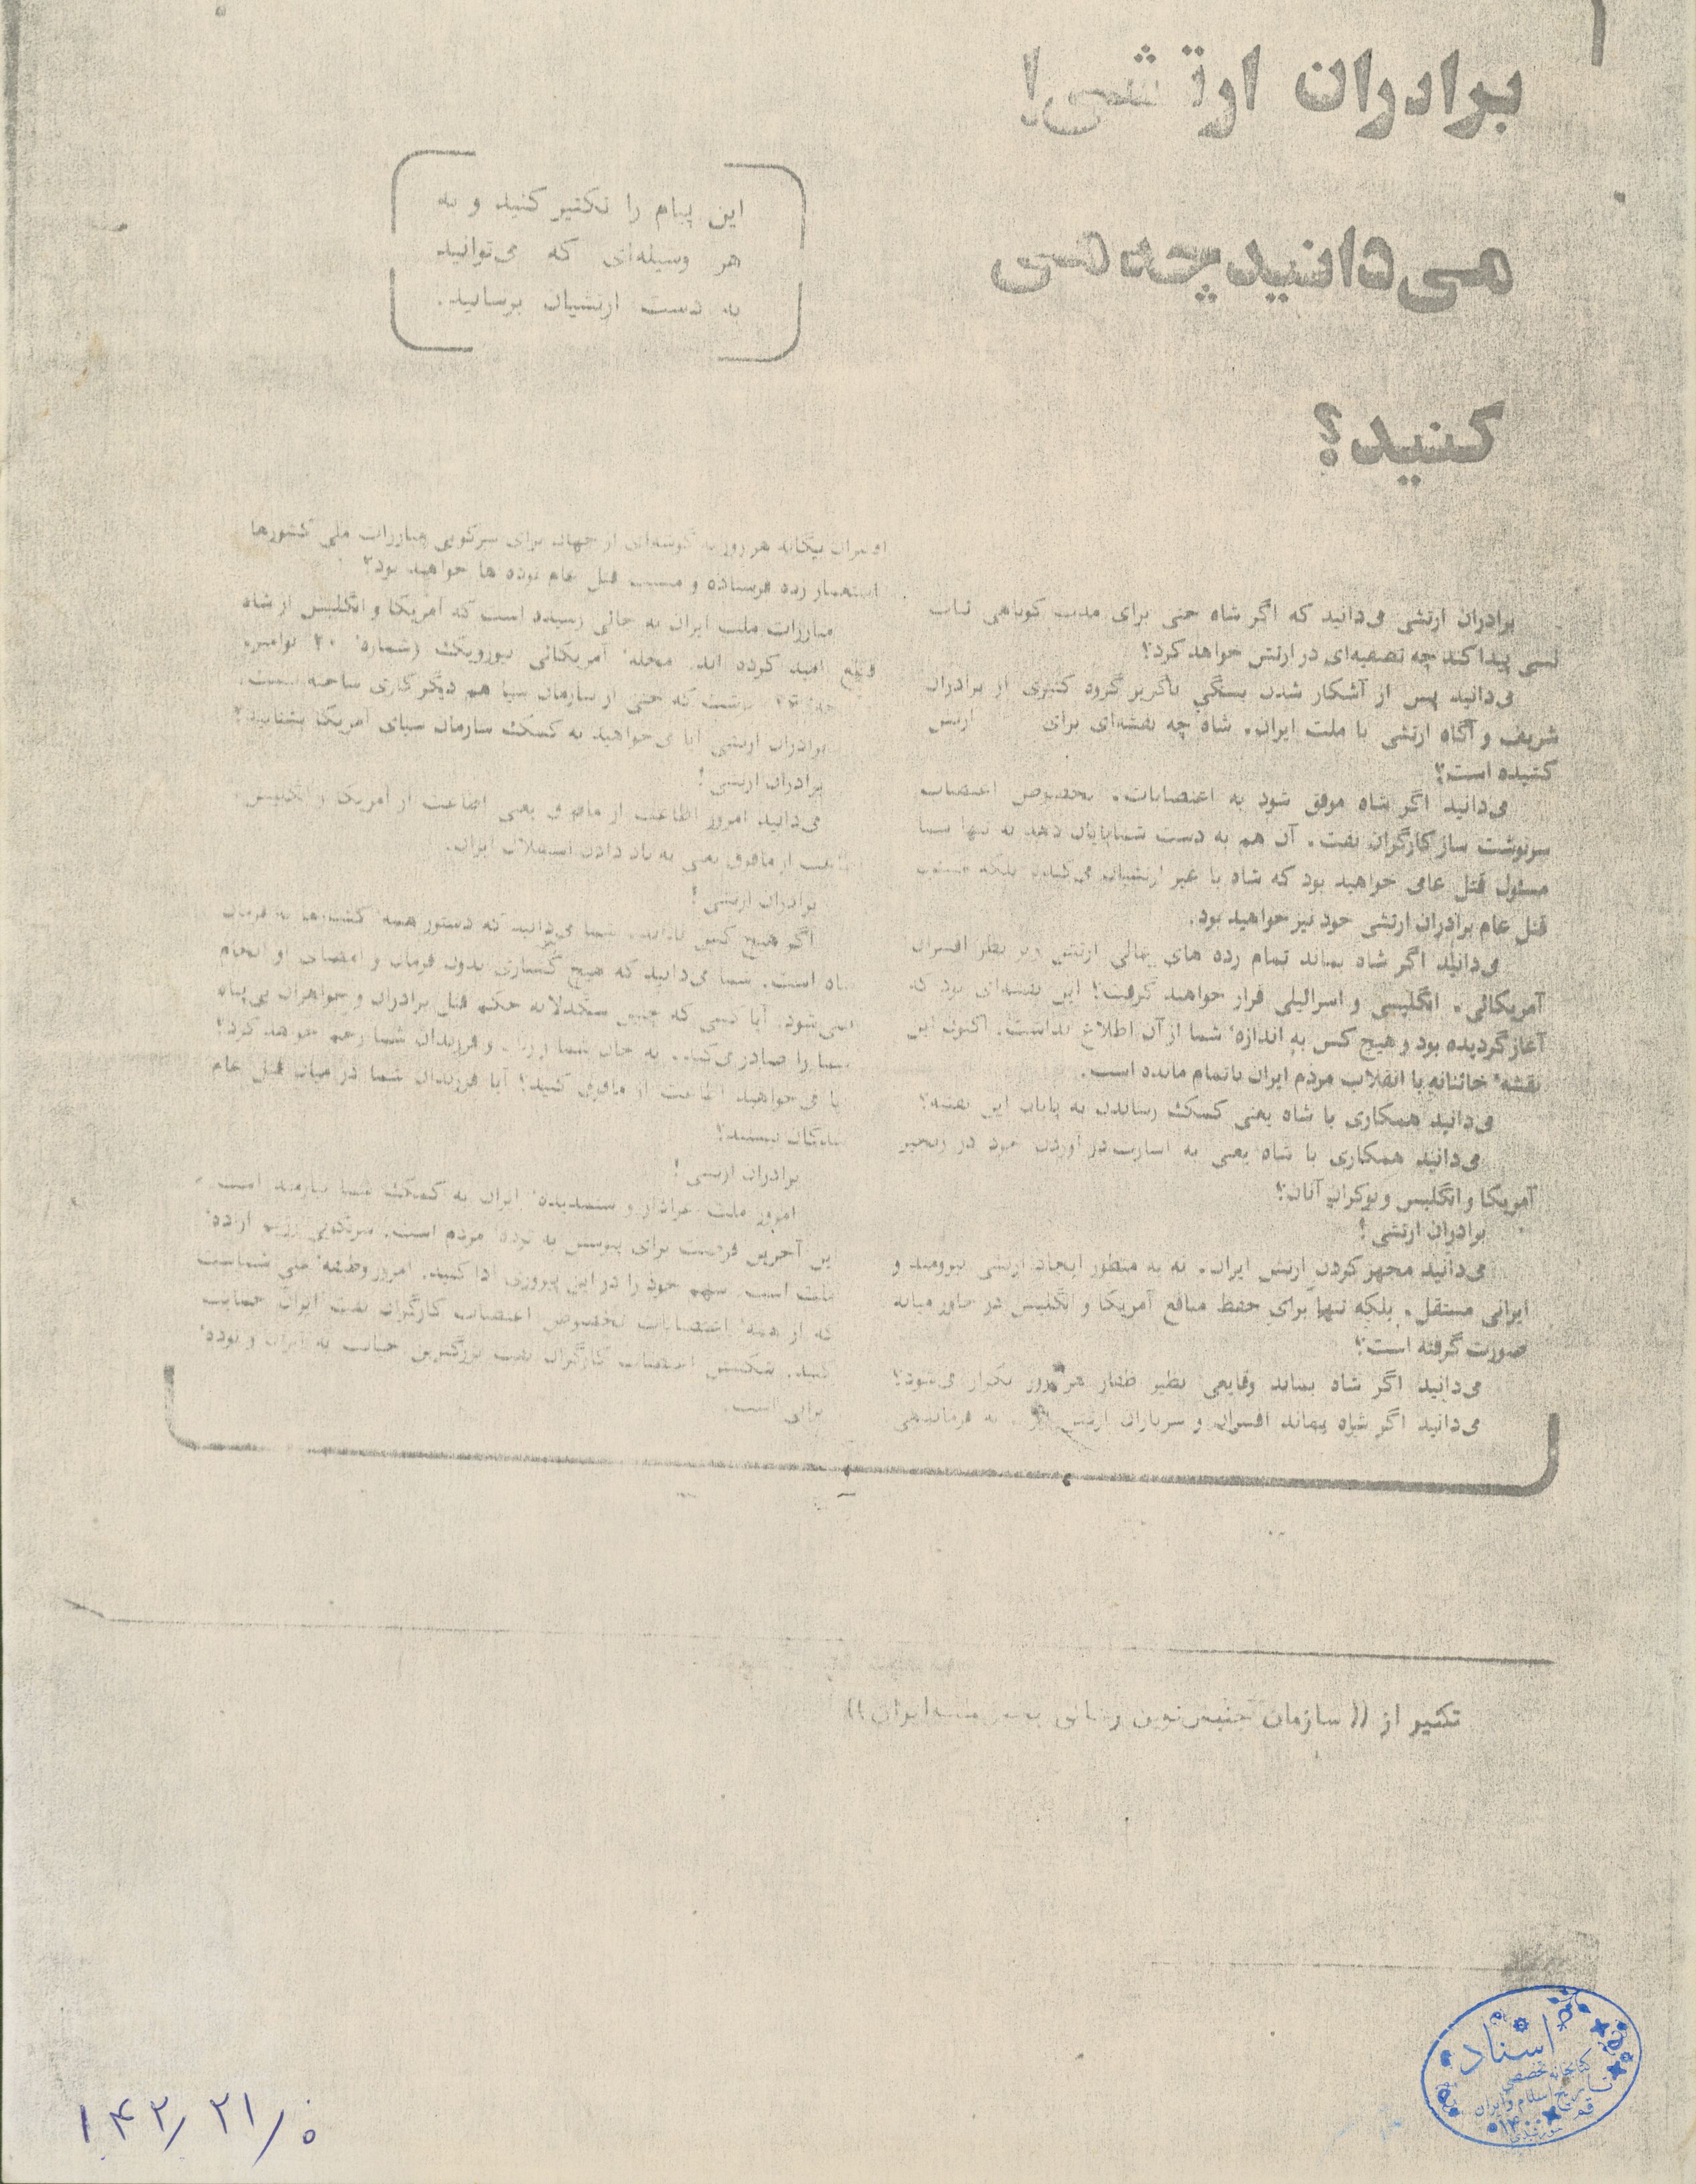 برادران ارتشی!
می‌دانید چه می
کنید؟
این پیام را تکثیر کنید و به
هر وسیله‌ای که می‌توانید
به دست ارتشیان برسانید.
برادران ارتشی می‌دانید که اگر شاه حتی برای مدت کوتاهی ثبات
نسبی پیدا کند چه تصفیه‌ای در ارتش خواهد کرد؟
می‌دانید پس از آشکار شدن بستگی ناگزیر گروه کثیری از برادران
شریف و آگاه ارتشی با ملت ایران، شاه چه نقشه‌ای برای ارتش
کشیده است؟
می‌دانید اگر شاه موفق شود به اعتصابات، بخصوص اعتصاب
سرنوشت ساز کارگران نفت، آن هم به دست شما پایان دهد نه تنها شما
مسئول قتل عامی خواهید بود که شاه با غیر ارتشیان می‌کند، بلکه مسئول
قتل عام برادران ارتشی خود نیز خواهید بود.
می‌دانید اگر شاه بماند تمام رده های عالی ارتش زیر نظر افسران
آمریکائی، انگلیسی و اسرائیلی قرار خواهند گرفت؟ این نقشه‌ای بود که
آغاز گردیده بود و هیچ کس به اندازهٔ شما از آن اطلاع نداشت. اکنون این
نقشهٔ خائنانه با انقلاب مردم ایران ناتمام مانده است.
می‌دانید همکاری با شاه یعنی کمک رساندن به پایان این نقشه؟
می‌دانید همکاری با شاه یعنی به اسارت در آوردن خود در زنجیر
آمریکا و انگلیس و نوکران آنان؟
برادران ارتشی!
می‌دانید مجهز کردن ارتش ایران، نه به منظور ایجاد ارتشی نیرومند و
ایرانی مستقل، بلکه تنها برای حفظ منافع آمریکا و انگلیس در خاور میانه
صورت گرفته است؟
می‌دانید اگر شاه بماند وقایعی نظیر ظفار هر روز تکرار می‌شود؟
می‌دانید اگر شاه بماند افسران و سربازان ارتش به فرماندهی
افسران بیگانه هر روز به گوشه‌ای از جهان برای سرکوبی مبارزات ملی کشورها
استعمار زده فرستاده و مسبب قتل عام توده ها خواهید بود؟
مبارزات ملت ایران به جائی رسیده است که آمریکا و انگلیس از شاه
قطع امید کرده اند. مجلهٔ آمریکائی نیوزویک (شمارهٔ ۲۰ نوامبر،
نوشت که حتی از سازمان سیا هم دیگر کاری ساخته نیست.
برادران ارتشی آیا می‌خواهید به کمک سازمان سیای آمریکا بشتابید؟
برادران ارتشی!
می‌دانید امروز اطاعت از مافوق یعنی اطاعت از آمریکا و انگلیس،
اطاعت از مافوق یعنی به باد دادن استقلال ایران.
برادران ارتشی!
اگر هیچ کس نداند، شما می‌دانید که دستور همهٔ کشتارها به فرمان
شاه است. شما می‌دانید که هیچ کشتاری بدون فرمان و امضای او انجام
نمی‌شود. آیا کسی که چنین سنگدلانه حکم قتل برادران و خواهران بی‌پناه
شما را صادر می‌کند، به جان شما و زنان و فرزندان شما رحم خواهد کرد؟
آیا می‌خواهید اطاعت از مافوق کنید؟ آیا فرزندان شما در میان قتل عام
شدگان نیستند؟
برادران ارتشی!
امروز ملت عزادار و ستمدیدهٔ ایران به کمک شما نیازمند است.
این آخرین فرصت برای پیوستن به تودهٔ مردم است. سرنگونی رژیم ارادهٔ
ملت است. سهم خود را در این پیروزی ادا کنید. امروز وظیفهٔ ملی شماست
که از همهٔ اعتصابات بخصوص اعتصاب کارگران نفت ایران حمایت
کنید. شکستن اعتصاب کارگران نفت بزرگترین خیانت به ایران و تودهٔ
ایرانی است.
تکثیر از (( سازمان جنبش نوین ایران ))
اسناد
کتابخانه تخصصی
تاریخ اسلام و ایران
قم
۱۴۲/۲۱/۰۵